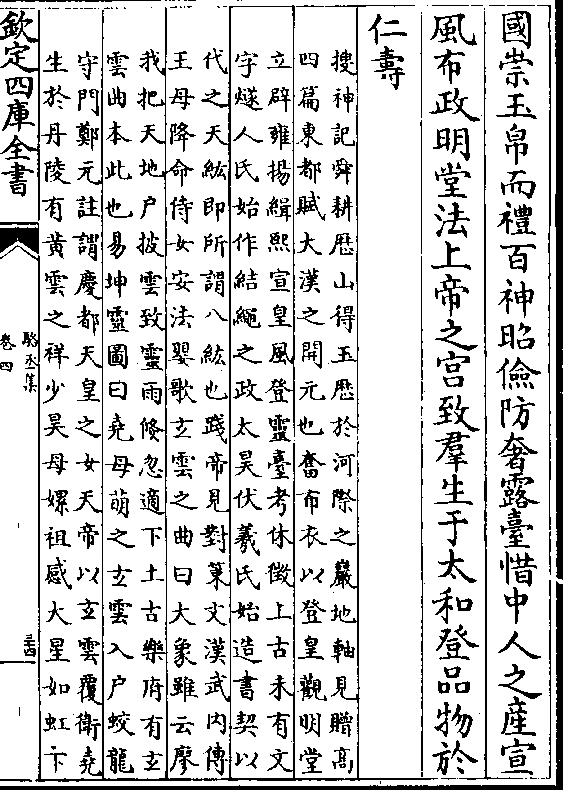 國崇玉帛而禮百神昭儉防奢露臺惜中人之産宣
風布政明堂法上帝之宫致羣生于太和登品物於
仁壽
搜神記舜耕歴山得玉歴於河際之巖地軸見贈高
四篇東都賦大漢之開元也奮布衣以登皇觀明堂
立辟雍揚緝熙宣皇風登靈臺考休徴上古未有文
字燧人氏始作結繩之政太昊伏羲氏始造書契以
代之天紘即所謂八紘也踐帝見對策文漢武内傳
王母降命侍女安法嬰歌𤣥雲之曲曰大象雖云廖
我把天地户披雲致靈雨倐忽適下土古樂府有𤣥
雲曲本此也易坤靈圖曰堯母萌之𤣥雲入户蛟龍
守門鄭元註謂慶都天皇之女天帝以𤣥雲覆衛堯
生於丹陵有黄雲之祥少昊母嫘祖感大星如虹下
欽定四庫全書
駱丞集
卷四